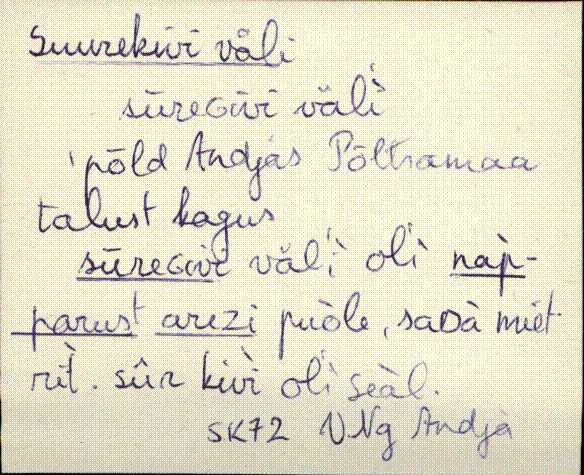 Suurekivi väli
sūreGivi väl̀i
põld Andjas Põltsamaa
talust kagus
sūreGivi väl̀i ol̀i nap̀-
parust arezi puòle, saDà miet-
rìt. sûr kivì ol̀i seàl.
SK72 V.Ng Andja